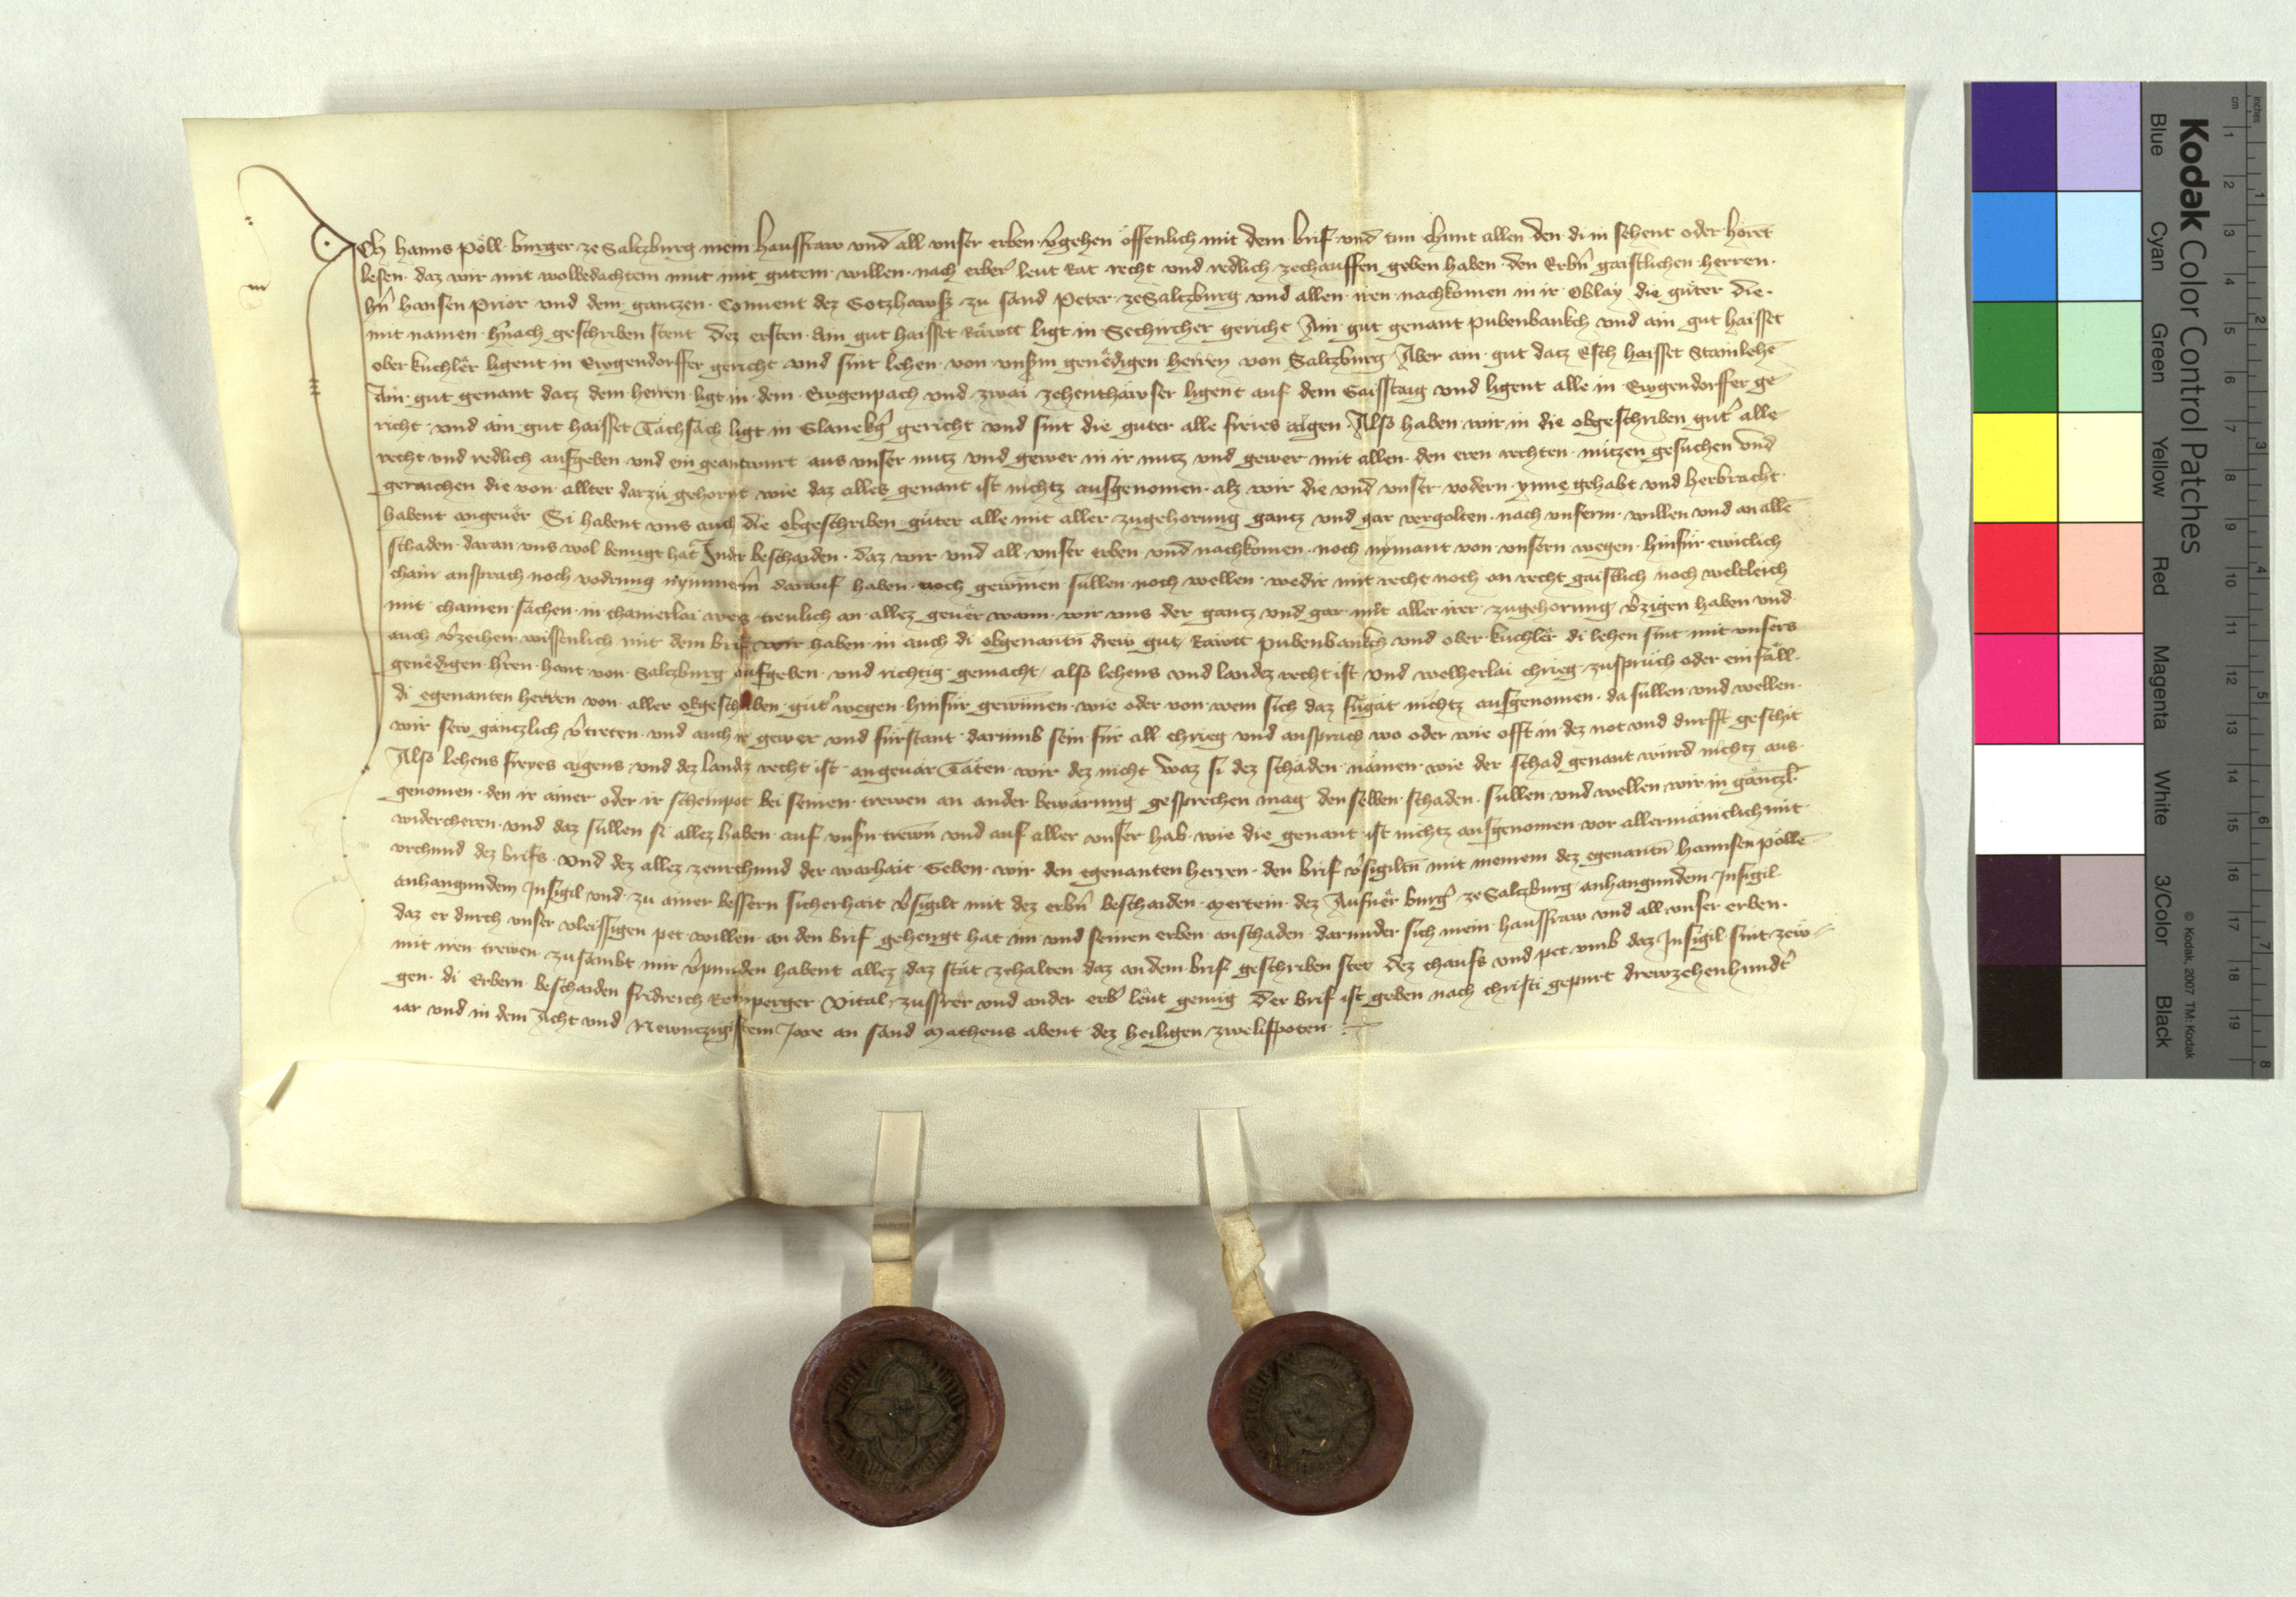 Ich hanns Pöll burger ze Saltzburg mein hausfraw vnd all vnser erben v̾gehen offenlich mit dem brif vnd tun chunt allen den di in sehent oder hörēt
lesen daz wir mit wolbedachtem mut mit gutem willen nach erber̾ leut Rat recht vnd redlich zechauffen geben haben den Erbn̄ gaistlichen herren
hn̄ hansen Prior vnd dem gantzen Conuent dez Gotzhawss zu sand Peter ze Saltzburg vnd allen iren nachkomen in ir Oblay die guter die
mit namen hn̄ach geschriben stent Dez ersten Ain gut haisset Räwtt ligt in Sechircher gericht Ain gut genant Pubenbankch vnd ain gut haisset
ober kuchler ligent in Ewgendorffer gericht vnd sint lehen von vnserm genedigen herren von Saltzburg Aber ain gut datz Esch haisset Stainlehē
Ain gut genant datz dem herren ligt in dem Ewgenpach vnd zwai zehenthäwser ligent auf dem Gaisstaig vnd ligent alle in Ewgendorffer ge
richt vnd ain gut haisset Tachsach ligt in Glanekg̾ gericht vnd sint die guter alle freies aigen Also haben wir in die obgeschriben gut̾ alle
recht vnd redlich aufgeben vnd ein geantwurt aus vnser nutz vnd gewer in ir nutz vnd gewer mit allen den eren rechten nutzen gesuchen vnd
gemachen die von allter darzu gehornt wie daz alles genant ist nichtz ausgenomen alz wir die vnd vnser vodern ynne gehabt vnd herbracht
habent angeuer Si habent vns auch die obgeschriben guter alle mit aller zugehorung gantz vnd gar vergolten nach vnserm willen vnd an allē
schaden daran vns wol benugt hat In der beschaiden daz wir vnd all vnser erben vnd nachkomen noch nymant von vnsern wegen hinfur ewiclich
chain ansprach noch vodrung nymmerm̄ darauf haben noch gewinnen sullen noch wellen weder mit recht noch an recht gaistlich noch weltleich
mit chainen sachen in chainerlai weg treulich an allez geuer wann wir vns der gantz vnd gar mit aller irer zugehorung v̾zigen haben vnd
auch v̾zeihen wissenlich mit dem brif wir haben in auch di obgenantn̄ drew gut Räwtt Pubenbankch vnd ober kuchler di lehen sint mit vnsers
genedigen hr̄en hant von Saltzburg aufgeben vnd richtig gemacht also lehens vnd landez recht ist Vnd welherlai chrieg zuspruch oder einfäll
di egenanten herren von aller obgeschriben gut̾ wegen hinfur gewinnen wie oder von wem sich daz fugat nichtz ausgenomen da sullen vnd wellen
wir sew gantzlich v̾treten vnd auch ir gewer vnd fürstant darumb sein für all chrieg vnd ansprach wo oder wie offt in dez not vnd durfft geschit
Also lehens freyes aigens vnd dez landz recht ist angeuar Täten wir dez nicht Waz si dez schaden nämen wie der schad genant würd nichtz aus
genomen den ir ainer oder ir scheinpot bei seinen trewen an ander bewarung gesprechen mag den selben schaden sullen vnd wellen wir in gantzl̄
widercheren vnd daz sullen si allez haben auf vnsn̄ trewn̄ vnd auf aller vnser hab wie die genant ist nichtz ausgenomen vor allermäniclich mit
vrchund dez brifs Vnd dez allez zeurchund der warhait Geben wir den egenanten herren den brif v̾sigiltn̄ mit meinem dez egenantn̄ hannsen Pöllē
anhangundem Insigil vnd zu ainer bessern sicherhait v̾sigilt mit dez erbn̄ beschaiden Mertein dez Aufner burg̾ ze Saltzburg anhangundem Insigil
daz er durch vnser vleissigen pet willen an den brif gehengt hat im vnd seinen erben anschaden darunder sich mein hausfraw vnd all vnser erben
mit iren trewen zusambt mir v̾punden habent allez daz stät zehalten daz an dem brif geschriben stet Dez chaufs vnd pet vmb daz Insigil sint zew
gen di Erbern beschaiden fridreich Remperger Vital zussrer vnd ander erb̾ leut genug Der brif ist geben nach christi gepurt drewzehenhundt̾
iar vnd in dem Acht vnd Newntzigistem Jare an sand Matheus abent dez heiligen zwelifpoten
Kodak Color Control Patches
Blue Cyan Green Yellow Red Magenta White 3/Color Black
© Kodak, 2007 TM: Kodak
cm 1 2 3 4 5 6 7 8 9 10 11 12 13 14 15 16 17 18 19
inches 1 2 3 4 5 6 7 8